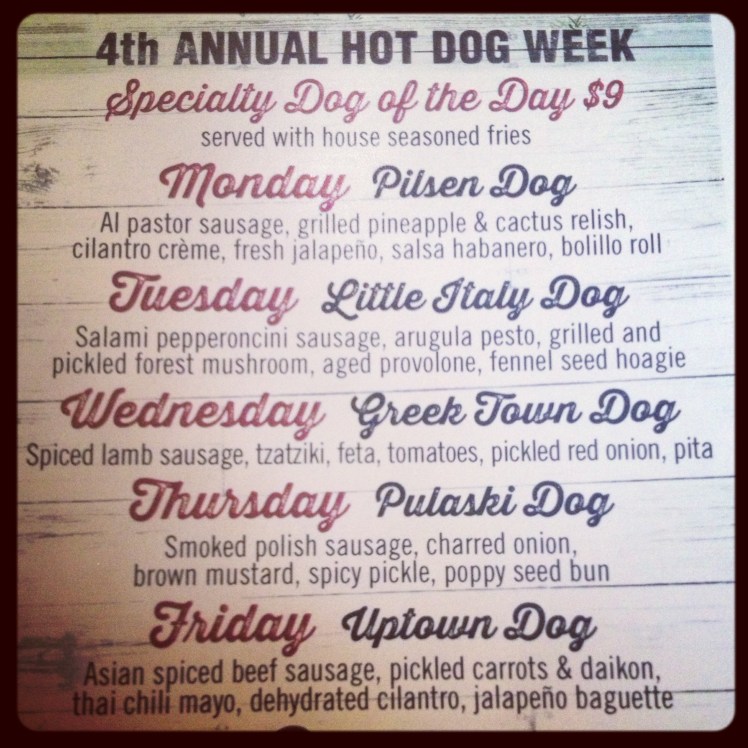 4th ANNUAL HOT DOG WEEK
Specialty Dog of the Day $9
served with house seasoned fries
Monday Pilsen Dog
Al pastor sausage, grilled pineapple & cactus relish,
cilantro crème, fresh jalapeño, salsa habanero, bolillo roll
Tuesday Little Italy Dog
Salami pepperoncini sausage, arugula pesto, grilled and
pickled forest mushroom, aged provolone, fennel seed hoagie
Wednesday Greek Town Dog
Spiced lamb sausage, tzatziki, feta, tomatoes, pickled red onion, pita
Thursday Pulaski Dog
Smoked polish sausage, charred onion,
brown mustard, spicy pickle, poppy seed bun
Friday Uptown Dog
Asian spiced beef sausage, pickled carrots & daikon,
thai chili mayo, dehydrated cilantro, jalapeño baguette